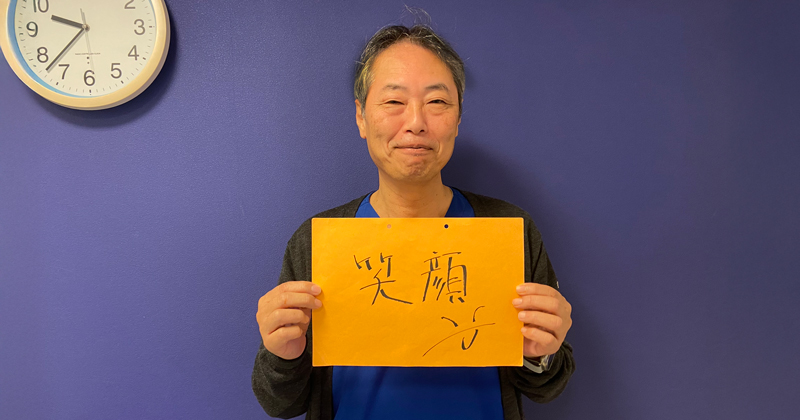 10
9
8
7
6
5
4
3
2
笑顔